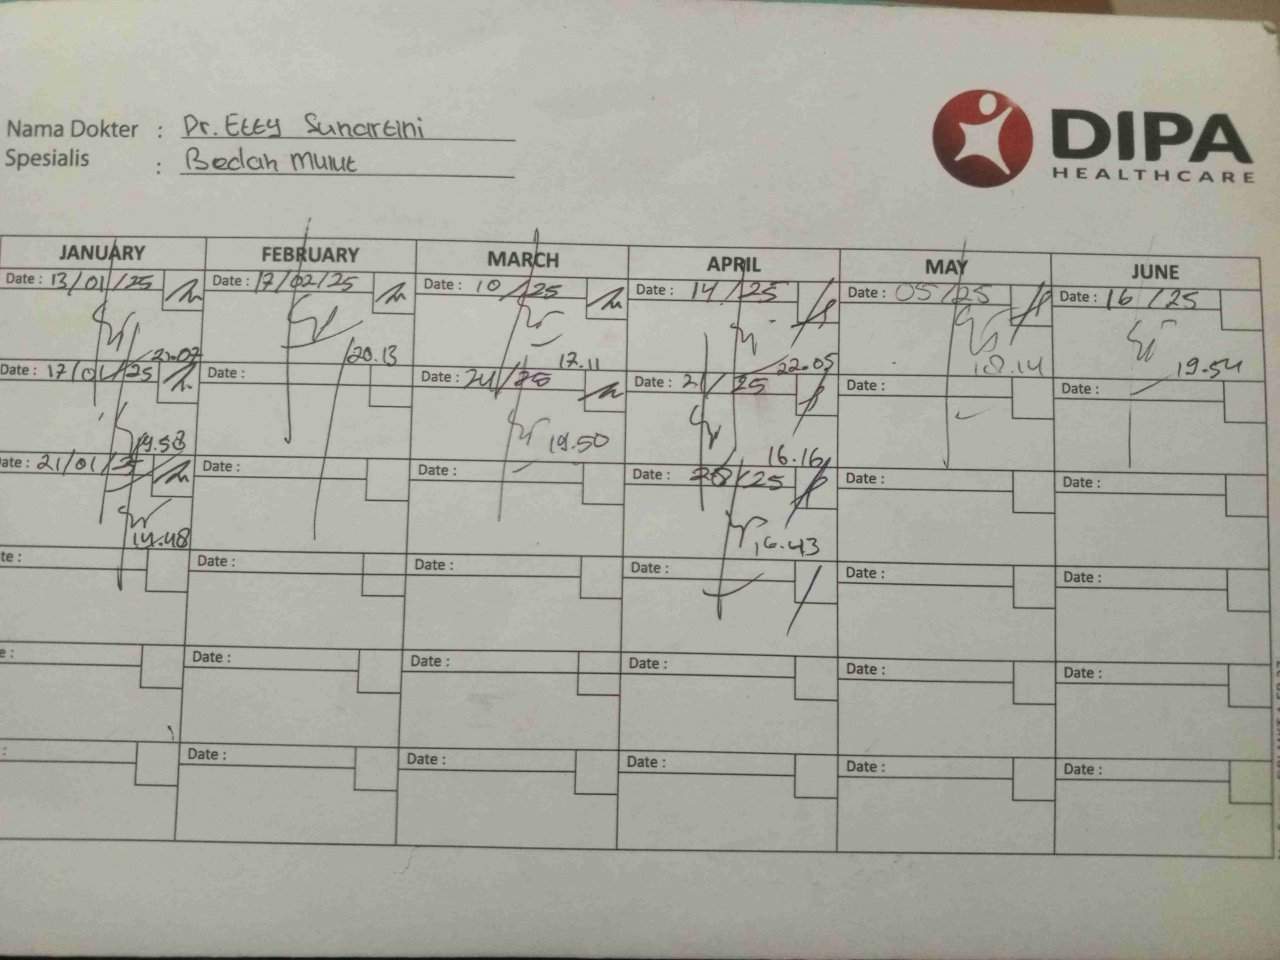 Nama Dokter : Dr. Etty Sunartini
Spesialis : Bedah Mulut
DIPA
HEALTHCARE
JANUARY FEBRUARY MARCH APRIL MAY JUNE
Date : 13/01/25 Date : 17/02/25 Date : 10/25 Date : 14/25 Date : 05/25 Date : 16/25
21.07 20.13 17.11 22.05 18.14 19.54
Date : 17/01/25 Date : Date : 24/25 Date : 21/25 Date : Date :
19.58 19.50 16.16
ate : 21/01/25 Date : Date : Date : 28/25 Date : Date :
14.48 16.43
te : Date : Date : Date : Date : Date :
e : Date : Date : Date : Date : Date :
: Date : Date : Date : Date : Date :